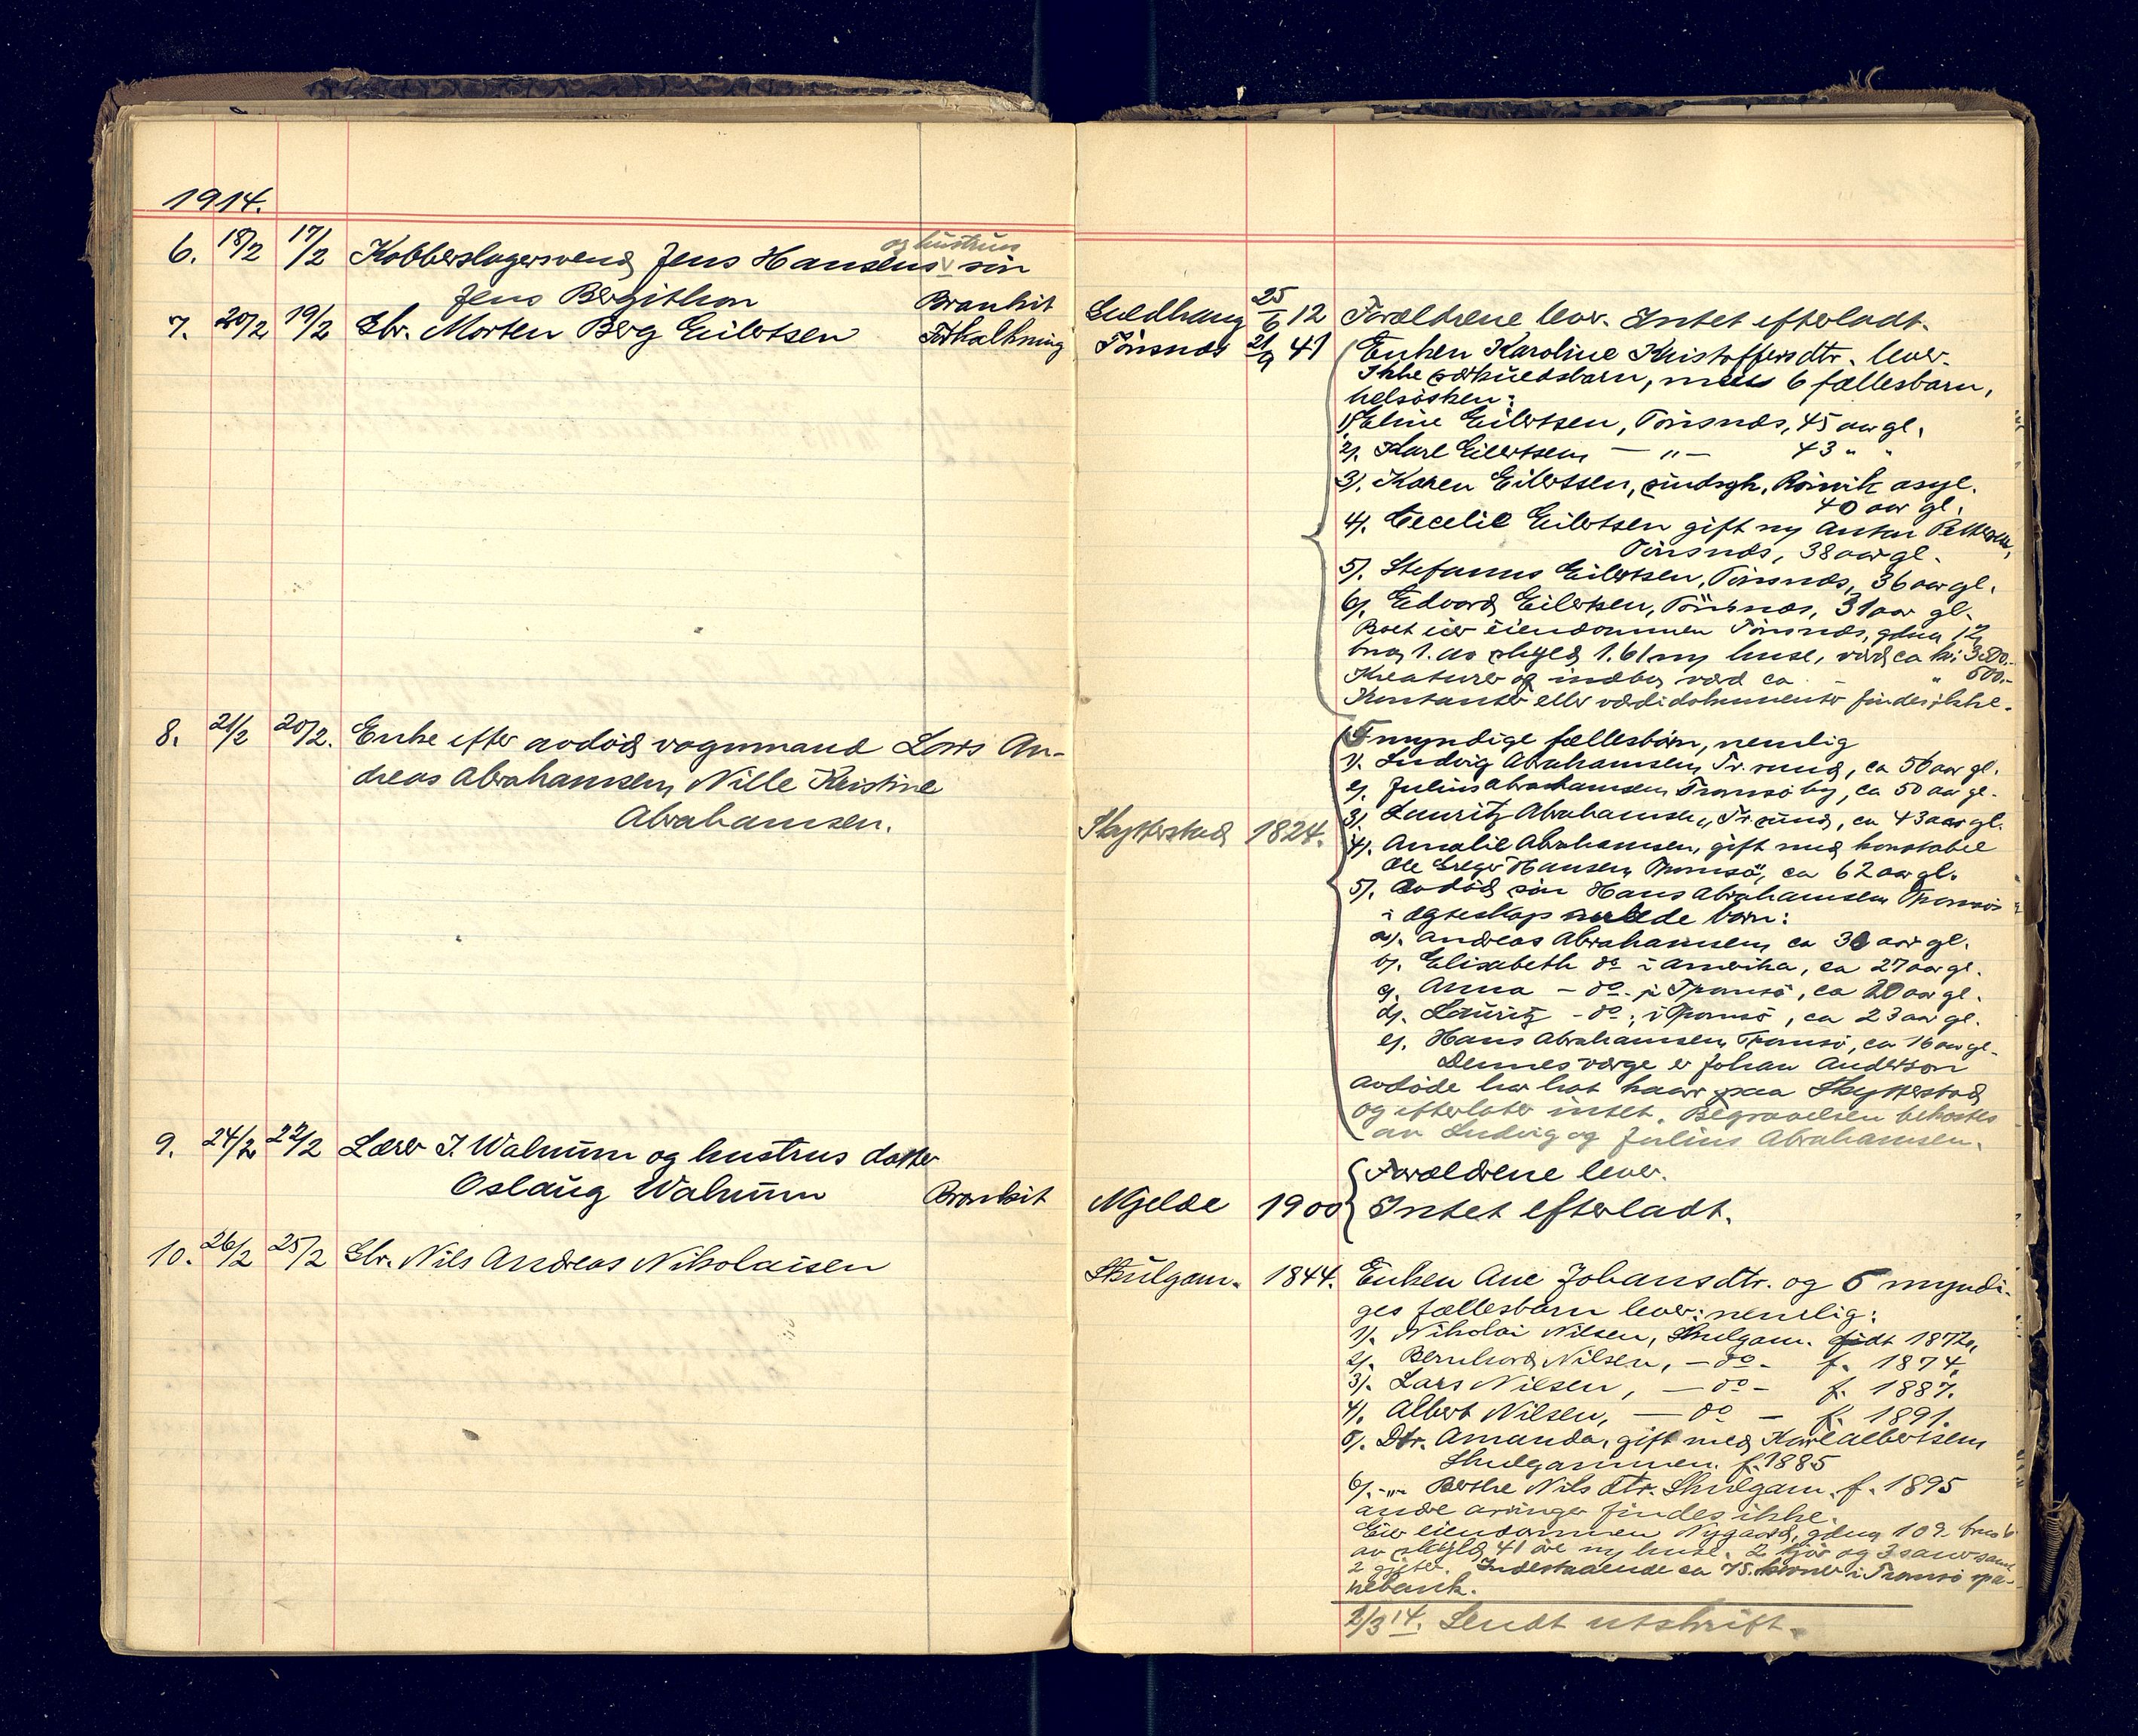 1914.
6. 18/2 17/2 Kobberslagersvend Jens Hansens og hustrus søn
Jens Bergithon Bronkit
7. 20/2 19/2 Gbr. Morten Berg Eilertsen Forkalkning
8. 21/2 20/2. Enke efter avdød vognmand Lars An-
dreas Abrahamsen, Nille Kristine
Abrahamsen.
9. 24/2 22/2 Lærer I. Walnum og hustrus datter
Oslaug Walnum Bronkit
10. 26/2 25/2 Gbr. Nils Andreas Nikolaisen
25/6 12 Forældrene lever. Intet efterladt.
Tönsnes 21/9 41 Enken Karoline Kristoffersdtr. lever.
Ikke særkuldsbarn, men 6 fællesbarn,
helsösken:
1). Eline Eilertsen, Tönsnes, 45 aar gl.
2). Karl Eilertsen — " — 43 " "
3). Karen Eilertsen, sindsyk, Rönvik asyl.
40 aar gl.
4). Cecelie Eilertsen gift m/ Anton Pettersen,
Tönsnes, 38 aar gl.
5). Stefanus Eilertsen, Tönsnes, 36 aar gl.
6). Edvard Eilertsen, Tönsnes, 31 aar gl.
Boet eier eiendommen Tönsnes, gdnr. 12,
bnr. 1. av skyld 1.61 m/ huse, værd ca kr. 3500.-
Kreaturer og indbo værd ca - " 500.-
Kontanter eller værdidokumenter findes ikke.
Skytterstad 1824. 5 myndige fællesbörn, nemlig
1). Ludvig Abrahamsen, Tr.sund, ca 56 aar gl.
2). Julius Abrahamsen, Tromsö by, ca 50 aar gl.
3). Lauritz Abrahamsen, Tr.sund, ca 43 aar gl.
4). Amalie Abrahamsen, gift med konstabel
Ole Hansen, Tromsö, ca 62 aar gl.
5). Avdöd sön Hans Abrahamsen Tromsö
i ægteskap avlede børn:
a). Andreas Abrahamsen, ca 30 aar gl.
b). Elisabeth do i Amerika, ca 27 aar gl.
c). Anna - do - i Tromsö, ca 20 aar gl.
d). Lauritz - do -, i Tromsö, ca 23 aar gl.
e). Hans Abrahamsen, Tromsö, ca 16 aar gl.
Dennes værge er Johan Anderson
Avdöde har hat kaar paa Skytterstad
og efterlater intet. Begravelsen bekostes
av Ludvig og Julius Abrahamsen.
Forældrene lever.
Mjelde 1900 Intet efterladt.
Skulgam. 1844. Enken Ane Johansdtr. og 6 myndi-
ges fællesbarn lever: nemlig:
1). Nikolai Nilsen, Skulgam. födt 1872,
2). Bernhard Nilsen, - do - f. 1874,
3). Lars Nilsen, - do - f. 1887.
4). Albert Nilsen, - do - f. 1891.
5). Dtr. Amanda, gift med Karl Albertsen,
Skulgammen. f. 1885
6). - " - Berthe Nilsdtr. Skulgam. f. 1895
andre arvinger findes ikke.
Eier eiendommen Nygaard, gdnr. 109. bnr. 6
av skyld 41 öre m/ huse. 2 kjör og 3 sauer samt
2 gjeter. Indestaaende ca 75. kroner i Tromsö spa-
rebank.
2/3 14. Sendt utskrift.